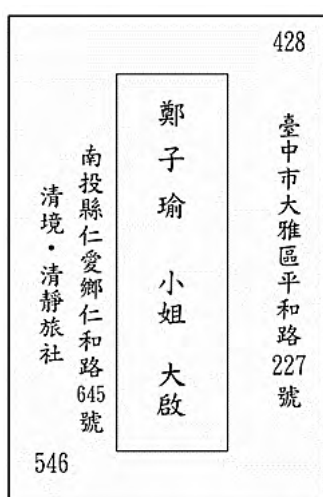 428
臺中市大雅區平和路227號
鄭子瑜 小姐 大啟
南投縣仁愛鄉仁和路645號
清境・清靜旅社
546